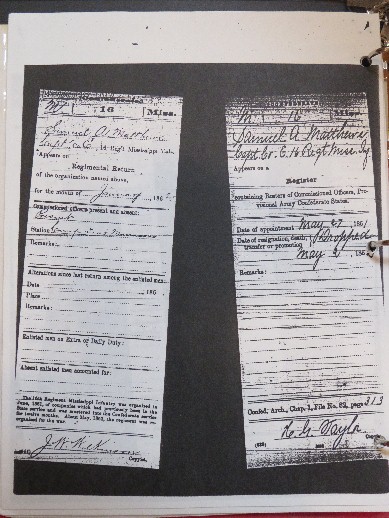 M 16 Miss.
Samuel A. Matthews
Capt, Co. E, 16 Reg't Mississippi Vols.
Appears on
Regimental Return
of the organization named above,
for the month of January, 186
Commissioned officers present and absent:
Station
Remarks:
Alterations since last return among the enlisted men:
Date 186
Place
Remarks:
Enlisted men on Extra or Daily Duty:
Absent enlisted men accounted for:
The 16th Regiment Mississippi Infantry was organized in
June, 1861, of companies which had previously been in the
State service and was mustered into the Confederate service
for twelve months. About May, 1862, the regiment was re-
organized for the war.
Copyist.
M 16 Miss.
Samuel A Matthews
Capt Co. E, 16 Regt Miss. Inf
Appears on a
Register
containing Rosters of Commissioned Officers, Pro-
visional Army Confederate States.
Date of appointment May 27, 1861
Date of resignation, death, Dropped
transfer or promotion
May 2, 186
Remarks:
Confed. Arch., Chap. 1, File No. 89, page 313
Copyist.